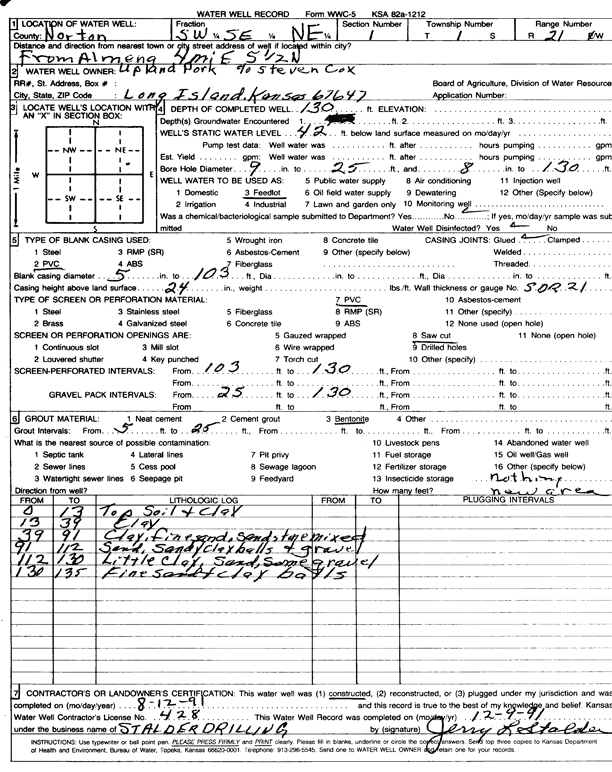 WATER WELL RECORD Form WWC-5 KSA 82a-1212
1 LOCATION OF WATER WELL: Fraction Section Number Township Number Range Number
County: Norton SW ¼ SE ¼ NE ¼ 1 T 1 S R 21 W
Distance and direction from nearest town or city street address of well if located within city?
From Almena 4 mi E 5 1/2 N
2 WATER WELL OWNER: Upland Pork % Steven Cox
RR#, St. Address, Box # : Board of Agriculture, Division of Water Resource
City, State, ZIP Code : Long Island, Kansas 67647 Application Number:
3 LOCATE WELL'S LOCATION WITH AN "X" IN SECTION BOX:
N
NW NE
W E
SW SE
S
1 Mile
4 DEPTH OF COMPLETED WELL 130 ft. ELEVATION:
Depth(s) Groundwater Encountered 1. ft. 2. ft. 3. ft.
WELL'S STATIC WATER LEVEL 42 ft. below land surface measured on mo/day/yr
Pump test data: Well water was ft. after hours pumping gpm
Est. Yield gpm: Well water was ft. after hours pumping gpm
Bore Hole Diameter 9 in. to 25 ft., and 8 in. to 130 ft.
WELL WATER TO BE USED AS: 5 Public water supply 8 Air conditioning 11 Injection well
1 Domestic 3 Feedlot 6 Oil field water supply 9 Dewatering 12 Other (Specify below)
2 Irrigation 4 Industrial 7 Lawn and garden only 10 Monitoring well
Was a chemical/bacteriological sample submitted to Department? Yes No ; If yes, mo/day/yr sample was sub
mitted Water Well Disinfected? Yes No
5 TYPE OF BLANK CASING USED: 5 Wrought iron 8 Concrete tile CASING JOINTS: Glued Clamped
1 Steel 3 RMP (SR) 6 Asbestos-Cement 9 Other (specify below) Welded
2 PVC 4 ABS 7 Fiberglass Threaded
Blank casing diameter 5 in. to 103 ft., Dia in. to ft., Dia in. to ft.
Casing height above land surface 24 in., weight lbs./ft. Wall thickness or gauge No. SDR 21
TYPE OF SCREEN OR PERFORATION MATERIAL: 7 PVC 10 Asbestos-cement
1 Steel 3 Stainless steel 5 Fiberglass 8 RMP (SR) 11 Other (specify)
2 Brass 4 Galvanized steel 6 Concrete tile 9 ABS 12 None used (open hole)
SCREEN OR PERFORATION OPENINGS ARE: 5 Gauzed wrapped 8 Saw cut 11 None (open hole)
1 Continuous slot 3 Mill slot 6 Wire wrapped 9 Drilled holes
2 Louvered shutter 4 Key punched 7 Torch cut 10 Other (specify)
SCREEN-PERFORATED INTERVALS: From 103 ft. to 130 ft., From ft. to ft.
From ft. to ft., From ft. to ft.
GRAVEL PACK INTERVALS: From 25 ft. to 130 ft., From ft. to ft.
From ft. to ft., From ft. to ft.
6 GROUT MATERIAL: 1 Neat cement 2 Cement grout 3 Bentonite 4 Other
Grout Intervals: From 5 ft. to 25 ft., From ft. to ft., From ft. to ft.
What is the nearest source of possible contamination: 10 Livestock pens 14 Abandoned water well
1 Septic tank 4 Lateral lines 7 Pit privy 11 Fuel storage 15 Oil well/Gas well
2 Sewer lines 5 Cess pool 8 Sewage lagoon 12 Fertilizer storage 16 Other (specify below)
3 Watertight sewer lines 6 Seepage pit 9 Feedyard 13 Insecticide storage nothing
Direction from well? How many feet? new area
FROM TO LITHOLOGIC LOG FROM TO PLUGGING INTERVALS
0 13 Top Soil & Clay
13 39 Clay
39 91 Clay, fine sand, sandstone mixed
91 112 Sand, Sandy clay balls & gravel
112 130 Little Clay, Sand, Some gravel
130 135 Fine sand & clay balls
7 CONTRACTOR'S OR LANDOWNER'S CERTIFICATION: This water well was (1) constructed, (2) reconstructed, or (3) plugged under my jurisdiction and was
completed on (mo/day/year) 8-12-91 and this record is true to the best of my knowledge and belief. Kansas
Water Well Contractor's License No. 428 This Water Well Record was completed on (mo/day/yr) 12-4-91
under the business name of STALDER DRILLING by (signature) Jerry L Stalder
INSTRUCTIONS: Use typewriter or ball point pen. PLEASE PRESS FIRMLY and PRINT clearly. Please fill in blanks, underline or circle the correct answers. Send top three copies to Kansas Department
of Health and Environment, Bureau of Water, Topeka, Kansas 66620-0001. Telephone: 913-296-5545. Send one to WATER WELL OWNER and retain one for your records.